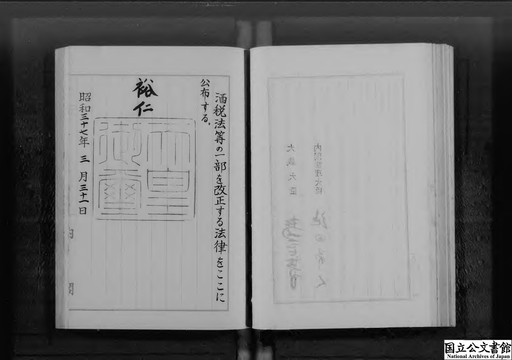 酒税法等の一部を改正する法律をここに
公布する。
裕仁
天皇御璽
昭和三十七年三月三十一日
内閣総理大臣
大蔵大臣
国立公文書館
National Archives of Japan